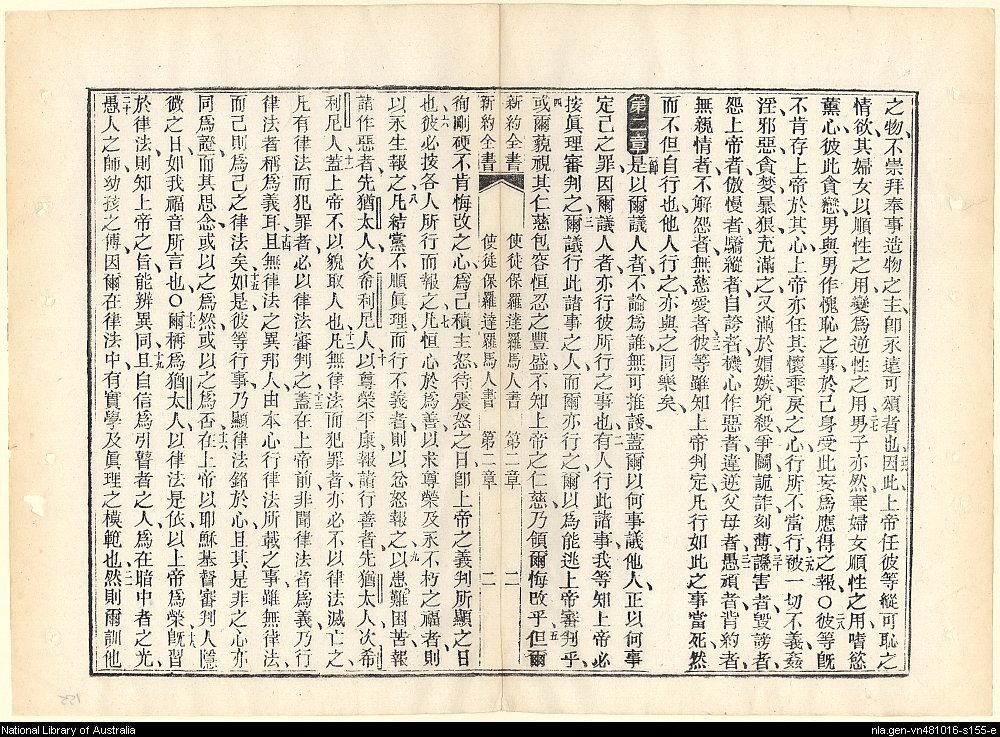 之物不崇拜奉事造物之主卽永遠可頌者也因此上帝任彼等縱可恥之
情欲其婦女以順性之用變爲逆性之用男子亦然棄婦女順性之用嗜慾
薰心彼此貪戀男與男作愧恥之事於己身受此妄爲應得之報○彼等旣
不肯存上帝於其心上帝亦任其懷乖戾之心行所不當行被一切不義姦
淫邪惡貪婪暴狠充滿之又滿於媢嫉兇殺爭鬭詭詐刻薄讒害者毀謗者
怨上帝者傲慢者驕縱者自誇者機心作惡者違逆父母者愚頑者背約者
無親情者不解怨者無慈愛者彼等雖知上帝判定凡行如此之事當死然
而不但自行也他人行之亦與之同樂矣
第二章是以爾議人者不論爲誰無可推諉蓋爾以何事議他人正以何事
定己之罪因爾議人者亦行彼所行之事也有人行此諸事我等知上帝必
按眞理審判之爾議行此諸事之人而爾亦行之爾以爲能逃上帝審判乎
或爾藐視其仁慈包容恒忍之豐盛不知上帝之仁慈乃領爾悔改乎但爾
新約全書 使徒保羅達羅馬人書 第二章 二
新約全書 使徒保羅達羅馬人書 第二章 二
徇剛硬不肯悔改之心爲己積主怒待震怒之日卽上帝之義判所顯之日
也彼必按各人所行而報之凡恒心於爲善以求尊榮及永不朽之福者則
以永生報之凡結黨不順眞理而行不義者則以忿怒報之以患難困苦報
諸作惡者先猶太人次希利尼人以尊榮平康報諸行善者先猶太人次希
利尼人蓋上帝不以貌取人也凡無律法而犯罪者亦必不以律法滅亡之
凡有律法而犯罪者必以律法審判之蓋在上帝前非聞律法者爲義乃行
律法者稱爲義耳且無律法之異邦人由本心行律法所載之事雖無律法
而己則爲己之律法矣如是彼等行事乃顯律法銘於心且其是非之心亦
同爲證而其思念或以之爲然或以之爲否在上帝以耶穌基督審判人隱
微之日如我福音所言也○爾稱爲猶太人以律法是依以上帝爲榮旣習
於律法則知上帝之旨能辨異同且自信爲引瞽者之人爲在暗中者之光
愚人之師幼孩之傅因爾在律法中有實學及眞理之模範也然則爾訓他
National Library of Australia
nla.gen-vn481016-s155-e